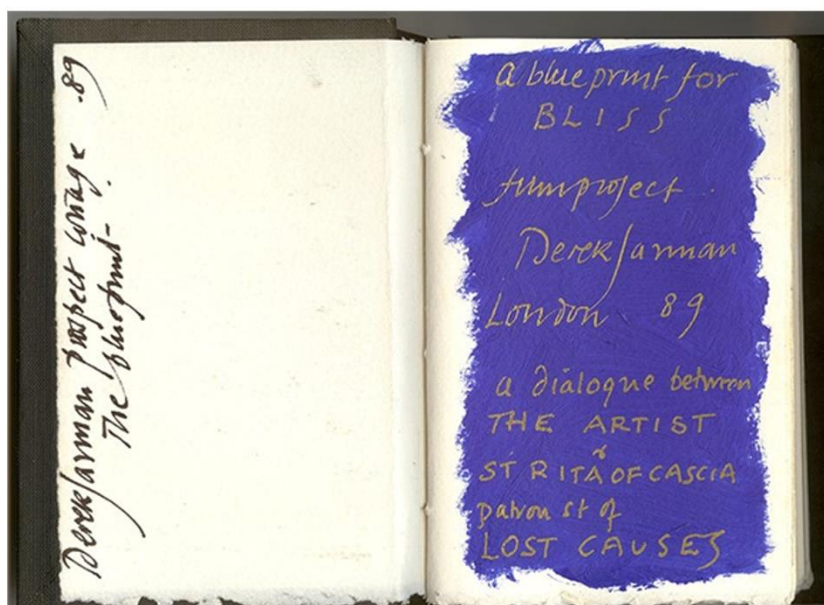 Derek Jarman Prospect Cottage .89
The blueprint-
a blueprint for
BLISS
filmproject .
Derek Jarman
London 89
a dialogue between
THE ARTIST
&
ST RITA OF CASCIA
patron st of
LOST CAUSES